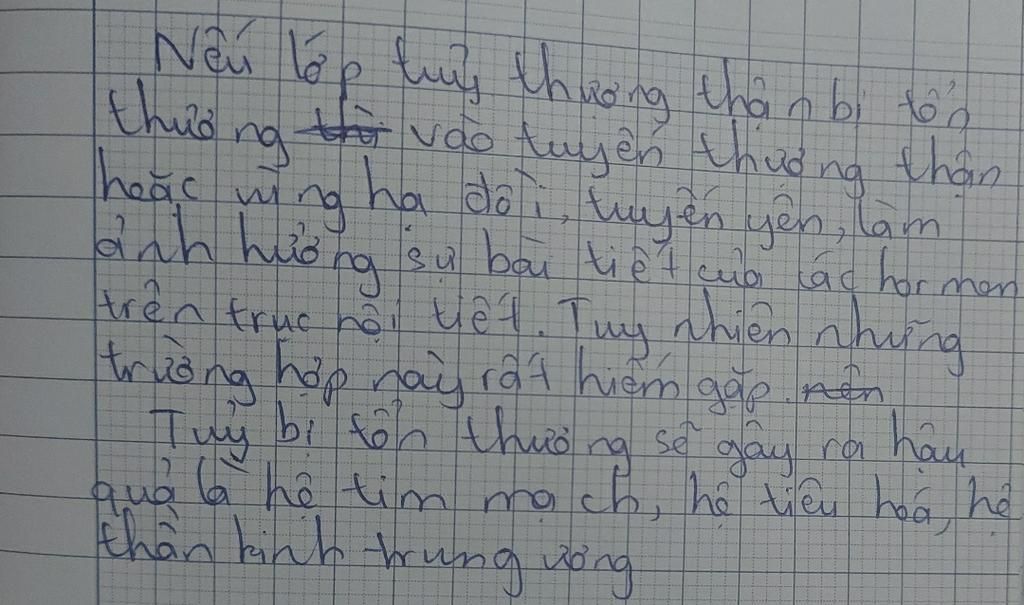 Nếu lớp tuỷ thượng thận bị tổn
thương vào tuyến thượng thận
hoặc vùng hạ đồi, tuyến yên, làm
ảnh hưởng sự bài tiết của các hormon
trên trục nội tiết. Tuy nhiên những
trường hợp này rất hiếm gặp.
Tuỷ bị tổn thương sẽ gây ra hậu
quả là hệ tim mạch, hệ tiêu hoá, hệ
thần kinh trung ương